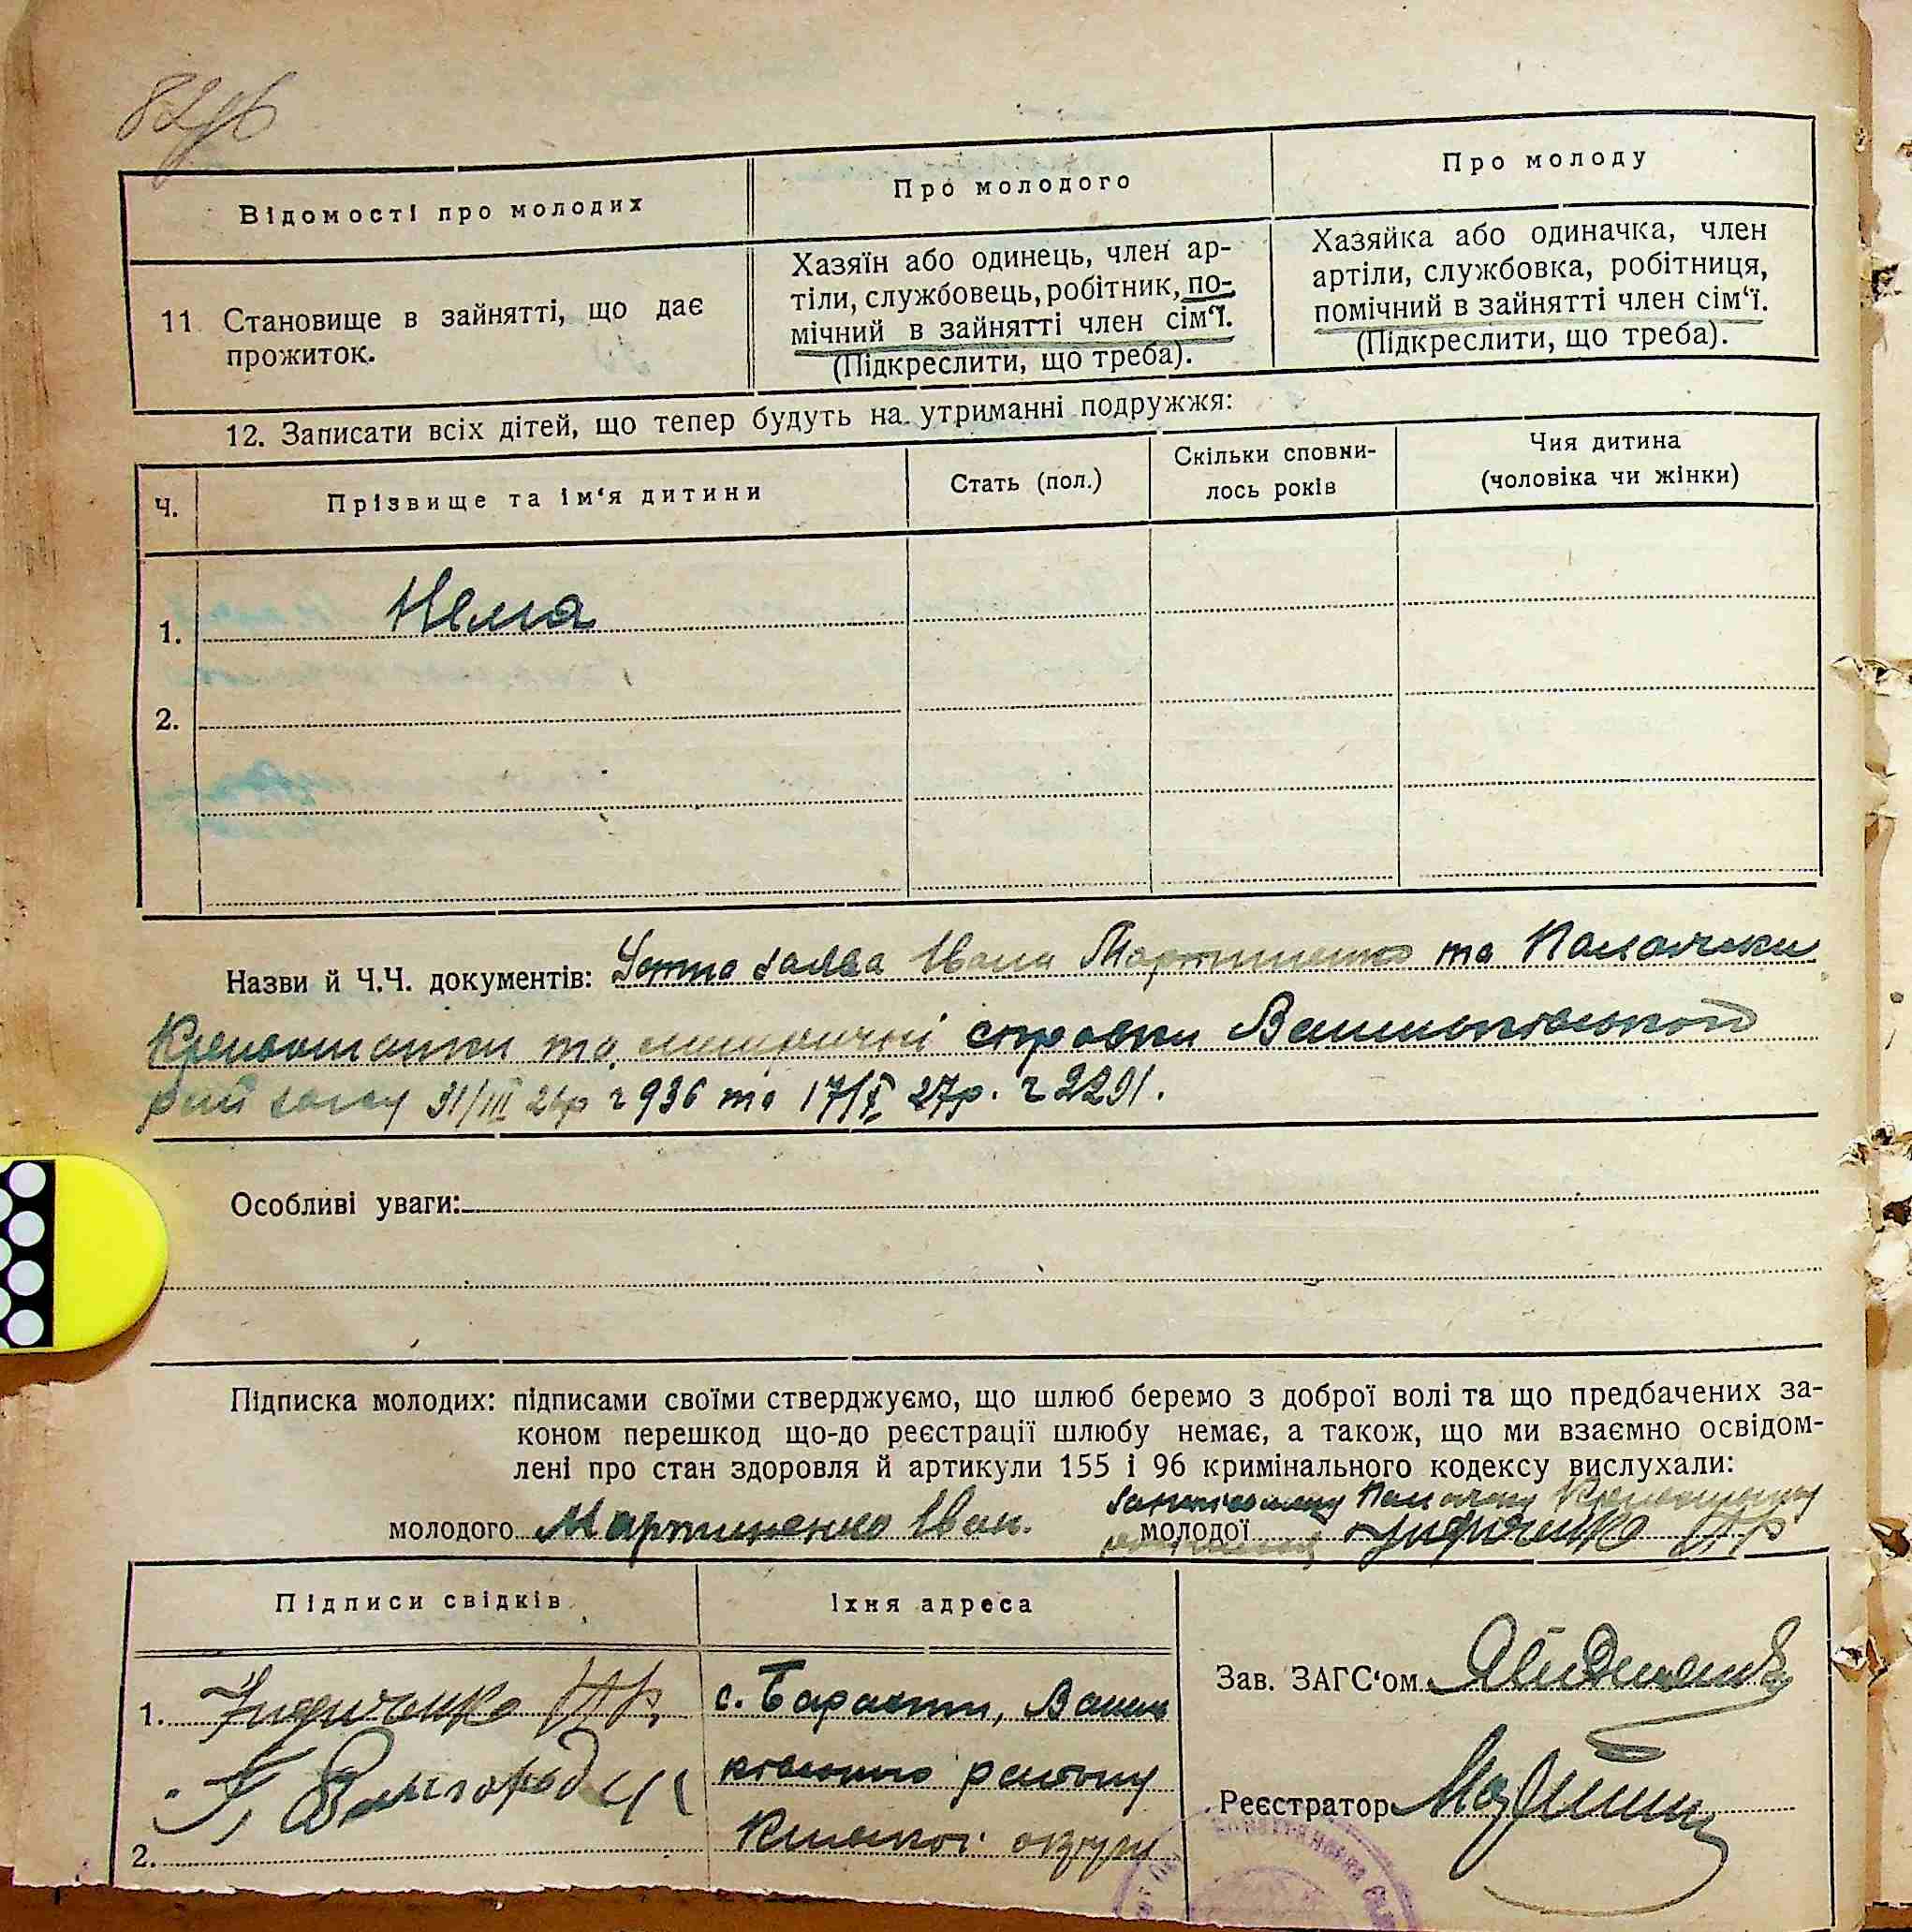 82
Відомості про молодих
Про молодого
Про молоду
11 Становище в зайнятті, що дає
прожиток.
Хазяїн або одинець, член ар-
тіли, службовець, робітник, по-
мічний в зайнятті член сім‘ї.
(Підкреслити, що треба).
Хазяйка або одиначка, член
артіли, службовка, робітниця,
помічний в зайнятті член сім‘ї.
(Підкреслити, що треба).
12. Записати всіх дітей, що тепер будуть на утриманні подружжя:
Ч.
Прізвище та ім‘я дитини
Стать (пол.)
Скільки сповни-
лось років
Чия дитина
(чоловіка чи жінки)
1. Нема
2.
Назви й Ч.Ч. документів: Устна заява Івана Мартиненко та Палажки
та метричні справки
31/III р ч 936 та 17/X 27р. ч 2291.
Особливі уваги:
Підписка молодих: підписами своїми стверджуємо, що шлюб беремо з доброї волі та що предбачених за-
коном перешкод що-до реєстрації шлюбу немає, а також, що ми взаємно освідом-
лені про стан здоровля й артикули 155 і 96 кримінального кодексу вислухали:
молодого Мартиненко Іван.
молодої
Підписи свідків
Їхня адреса
1.
с. Барахти, Василь
ківського району
Київської округи
2.
Зав. ЗАГС‘ом
Реєстратор